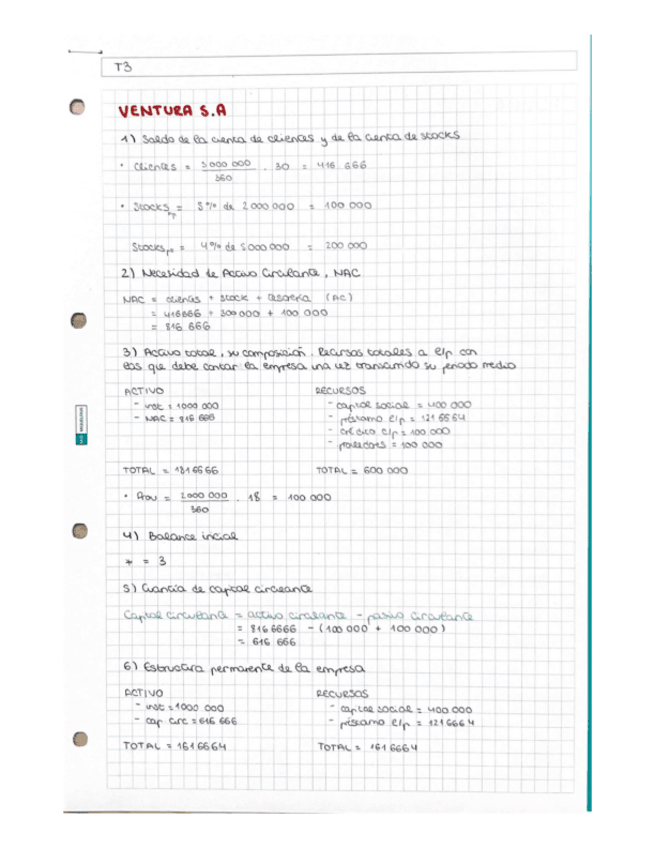 T3
VENTURA S.A
1) Saldo de la cuenta de clientes y de la cuenta de stocks
· Clientes = 5 000 000 / 360 . 30 = 416 666
· Stocks = 5% de 2 000 000 = 100 000
Stocks = 4% de 5 000 000 = 200 000
2) Necesidad de Activo Circulante, NAC
NAC = clientes + stock + tesorería (AC)
= 416666 + 300 000 + 100 000
= 816 666
3) Activo total, su composición. Recursos totales a e/p con
los que debe contar la empresa una vez transcurrido su periodo medio
ACTIVO
- inst = 1000 000
- NAC = 816 666
TOTAL = 1816666
RECURSOS
- capital social = 400 000
- préstamo e/p = 121 6664
- crédito c/p = 100 000
- proveedores = 100 000
TOTAL = 600 000
· Prov = 2000 000 / 360 . 18 = 100 000
4) Balance inicial
* = 3
5) Cuantía de capital circulante
Capital circulante = activo circulante - pasivo circulante
= 816 6666 - (100 000 + 100 000)
= 616 666
6) Estructura permanente de la empresa
ACTIVO
- inst = 1000 000
- cap circ = 616 666
TOTAL = 1616664
RECURSOS
- capital social = 400 000
- préstamo e/p = 121 666 4
TOTAL = 161 6664